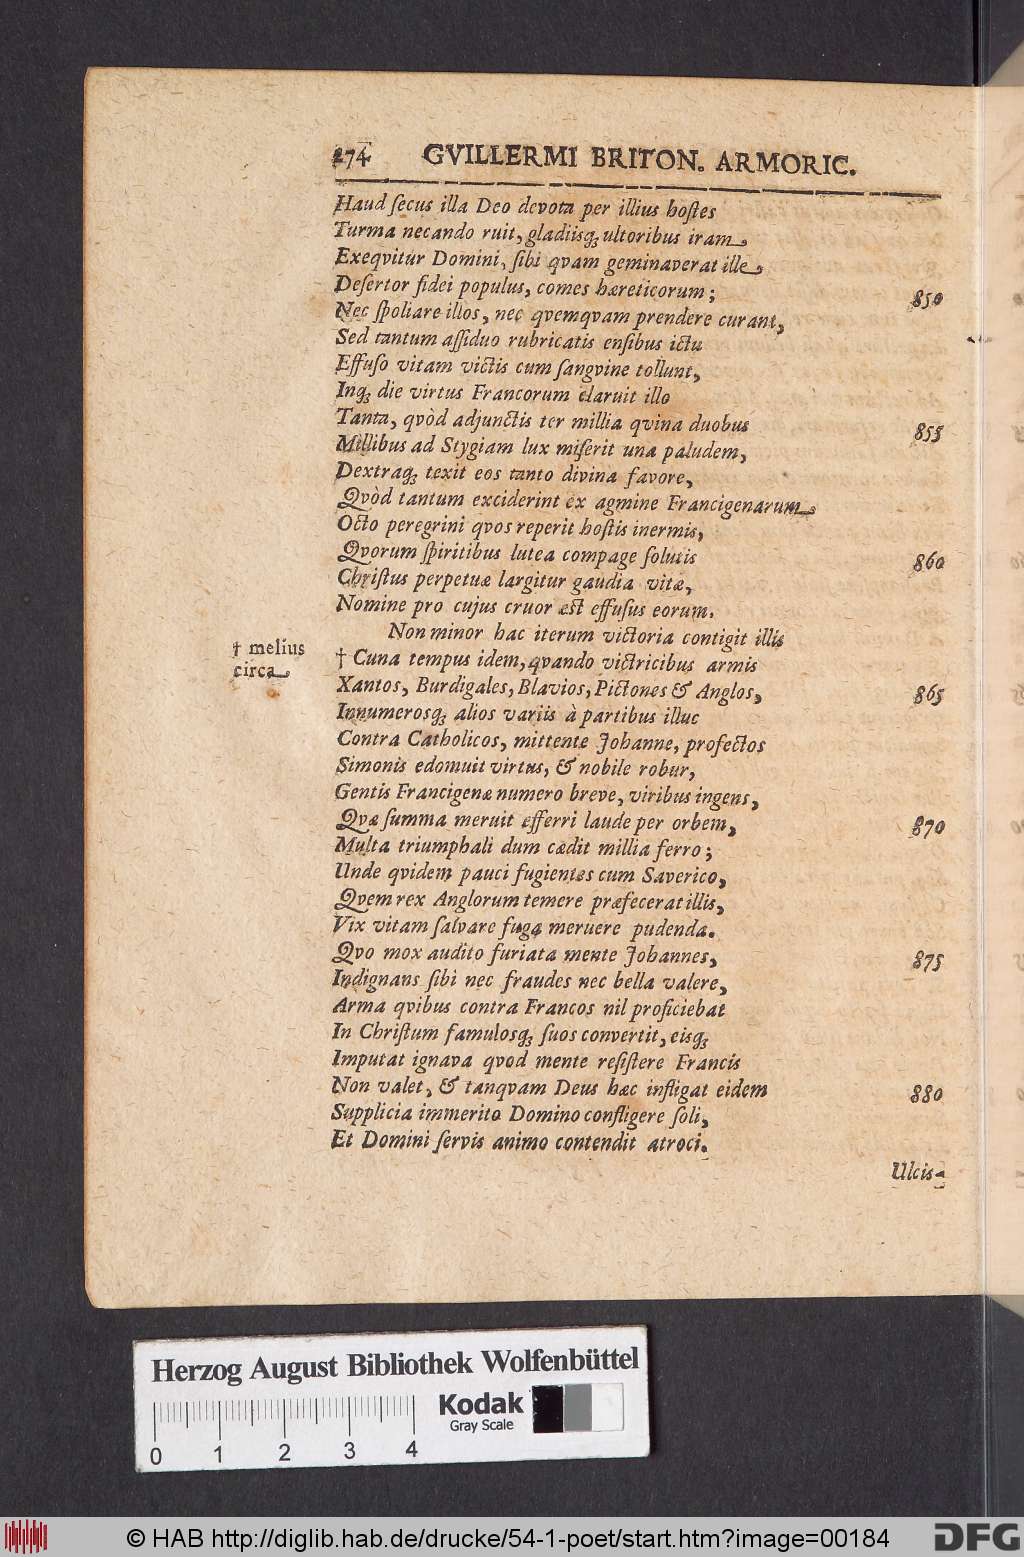 274 GVILLERMI BRITON. ARMORIC.
Haud ſecus illa Deo devota per illius hoſtes
Turma necando ruit, gladiisqꝫ ultoribus iram
Exeqvitur Domini, ſibi qvam geminaverat ille,
Deſertor fidei populus, comes hæreticorum; 850
Nec ſpoliare illos, nec qvemqvam prendere curant,
Sed tantum aſſiduo rubricatis enſibus ictu
Effuſo vitam victis cum ſangvine tollunt,
Inqꝫ die virtus Francorum claruit illo
Tanta, qvòd adjunctis ter millia qvina duobus 855
Millibus ad Stygiam lux miſerit una paludem,
Dextraqꝫ texit eos tanto divina favore,
Qvòd tantum exciderint ex agmine Francigenarum
Octo peregrini qvos reperit hoſtis inermis,
Qvorum ſpiritibus lutea compage ſolutis 860
Chriſtus perpetuæ largitur gaudia vitæ,
Nomine pro cujus cruor eſt effuſus eorum.
Non minor hac iterum victoria contigit illis
† melius
circa
† Cuna tempus idem, qvando victricibus armis
Xantos, Burdigales, Blavios, Pictones & Anglos, 865
Innumerosqꝫ alios variis à partibus illuc
Contra Catholicos, mittente Johanne, profectos
Simonis edomuit virtus, & nobile robur,
Gentis Francigenæ numero breve, viribus ingens,
Qvæ ſumma meruit efferri laude per orbem, 870
Multa triumphali dum cædit millia ferro;
Unde qvidem pauci fugientes cum Saverico,
Qvem rex Anglorum temere præfecerat illis,
Vix vitam ſalvare fuga meruere pudenda.
Qvo mox audito furiata mente Johannes, 875
Indignans ſibi nec fraudes nec bella valere,
Arma qvibus contra Francos nil proficiebat
In Chriſtum famulosqꝫ ſuos convertit, eisqꝫ
Imputat ignava qvod mente reſiſtere Francis
Non valet, & tanqvam Deus hæc infligat eidem 880
Supplicia immerito Domino confligere ſoli,
Et Domini ſervis animo contendit atroci.
Ulcis-
Herzog August Bibliothek Wolfenbüttel
0 1 2 3 4
Kodak
Gray Scale
© HAB http://diglib.hab.de/drucke/54-1-poet/start.htm?image=00184
DFG